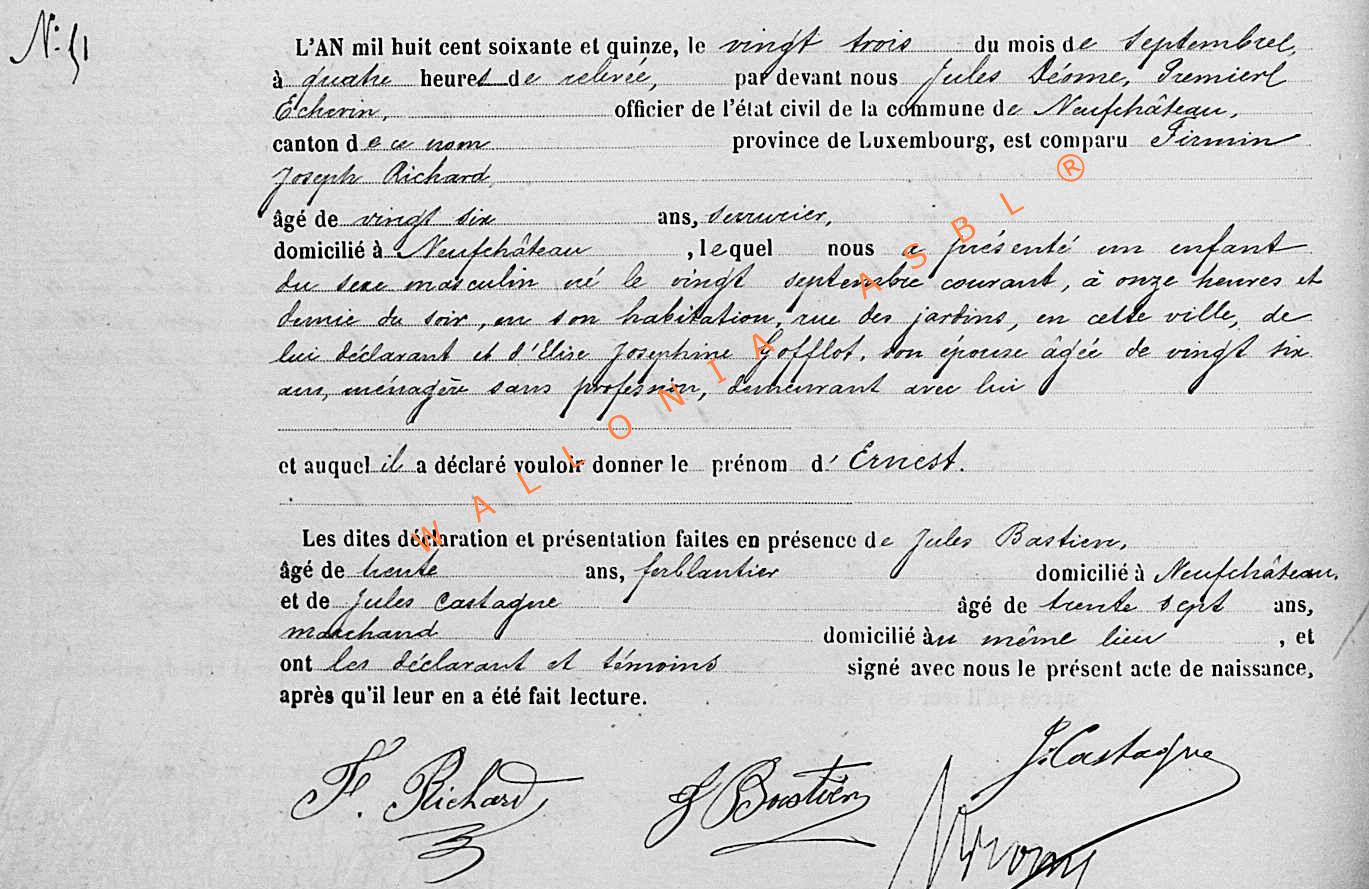 N° 51
L'AN mil huit cent soixante et quinze, le vingt trois du mois de Septembre,
à quatre heures de relevée, par devant nous Jules Déome, Premier
Echevin, officier de l'état civil de la commune de Neufchâteau,
canton de ce nom province de Luxembourg, est comparu Firmin
Joseph Richard,
âgé de vingt six ans, serrurier,
domicilié à Neufchâteau, lequel nous a présenté un enfant
du sexe masculin né le vingt septembre courant, à onze heures et
demie du soir, en son habitation, rue des jardins, en cette ville, de
lui déclarant et d'Elise Josephine Gofflot, son épouse âgée de vingt six
ans, ménagère sans profession, demeurant avec lui
et auquel il a déclaré vouloir donner le prénom d'Ernest.
Les dites déclaration et présentation faites en présence de Jules Bastien,
âgé de trente ans, ferblantier domicilié à Neufchâteau,
et de Jules Castagne âgé de trente sept ans,
marchand domicilié au même lieu, et
ont les déclarant et témoins signé avec nous le présent acte de naissance,
après qu'il leur en a été fait lecture.
J. Castagne
F. Richard J Bastien
WALLONIA ASBL ®